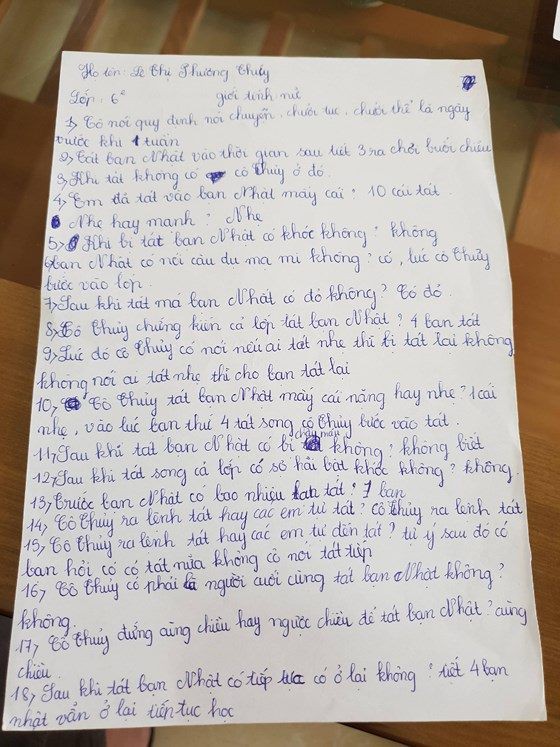 Họ tên: Lê Thị Phương Thúy
Lớp: 6² giới tính nữ
1, Cô nói quy định nói chuyện, chưởi tục, chưởi thề là ngày
trước khi 1 tuần
2, Tát bạn Nhật vào thời gian sau tiết 3 ra chơi buổi chiều
3, Khi tát không có cô Thủy ở đó.
4, Em đã tát vào bạn Nhật mấy cái? 10 cái tát.
Nhẹ hay mạnh? Nhẹ
5, Khi bị tát bạn Nhật có khóc không? không
6, bạn Nhật có nói câu du ma mi không? có, lúc cô Thủy
bước vào lớp.
7, Sau khi tát mà bạn Nhật có đỏ không? Có đỏ.
8, Cô Thủy chứng kiến cả lớp tát bạn Nhật? 4 bạn tát
9, Lúc đó cô Thủy có nói nếu ai tát nhẹ thì bị tát lại không
không nói ai tát nhẹ thì cho bạn tát lại
10, Cô Thủy tát bạn Nhật mấy cái nặng hay nhẹ? 1 cái
nhẹ, vào lúc bạn thứ 4 tát song cô Thủy bước vào tát.
11, Sau khi tát bạn Nhật có bị chảy máu không? không biết
12, Sau khi tát song cả lớp có sợ hãi bật khóc không? không.
13, Trước bạn Nhật có bao nhiêu bạn tát? 7 bạn
14, Cô Thủy ra lệnh tát hay các em tự tát? cô Thủy ra lệnh tát
15, Cô Thủy ra lệnh tát hay các em tự đến tát? tự ý sau đó có
bạn hỏi cô có tát nữa không cô nói tát tiếp
16, Cô Thủy có phải là người cuối cùng tát bạn Nhật không?
không.
17, Cô Thủy đứng cùng chiều hay ngược chiều để tát bạn Nhật? cùng
chiều.
18, Sau khi tát bạn Nhật có tiếp tục có ở lại không? tiết 4 bạn
nhật vẫn ở lại tiến tục học